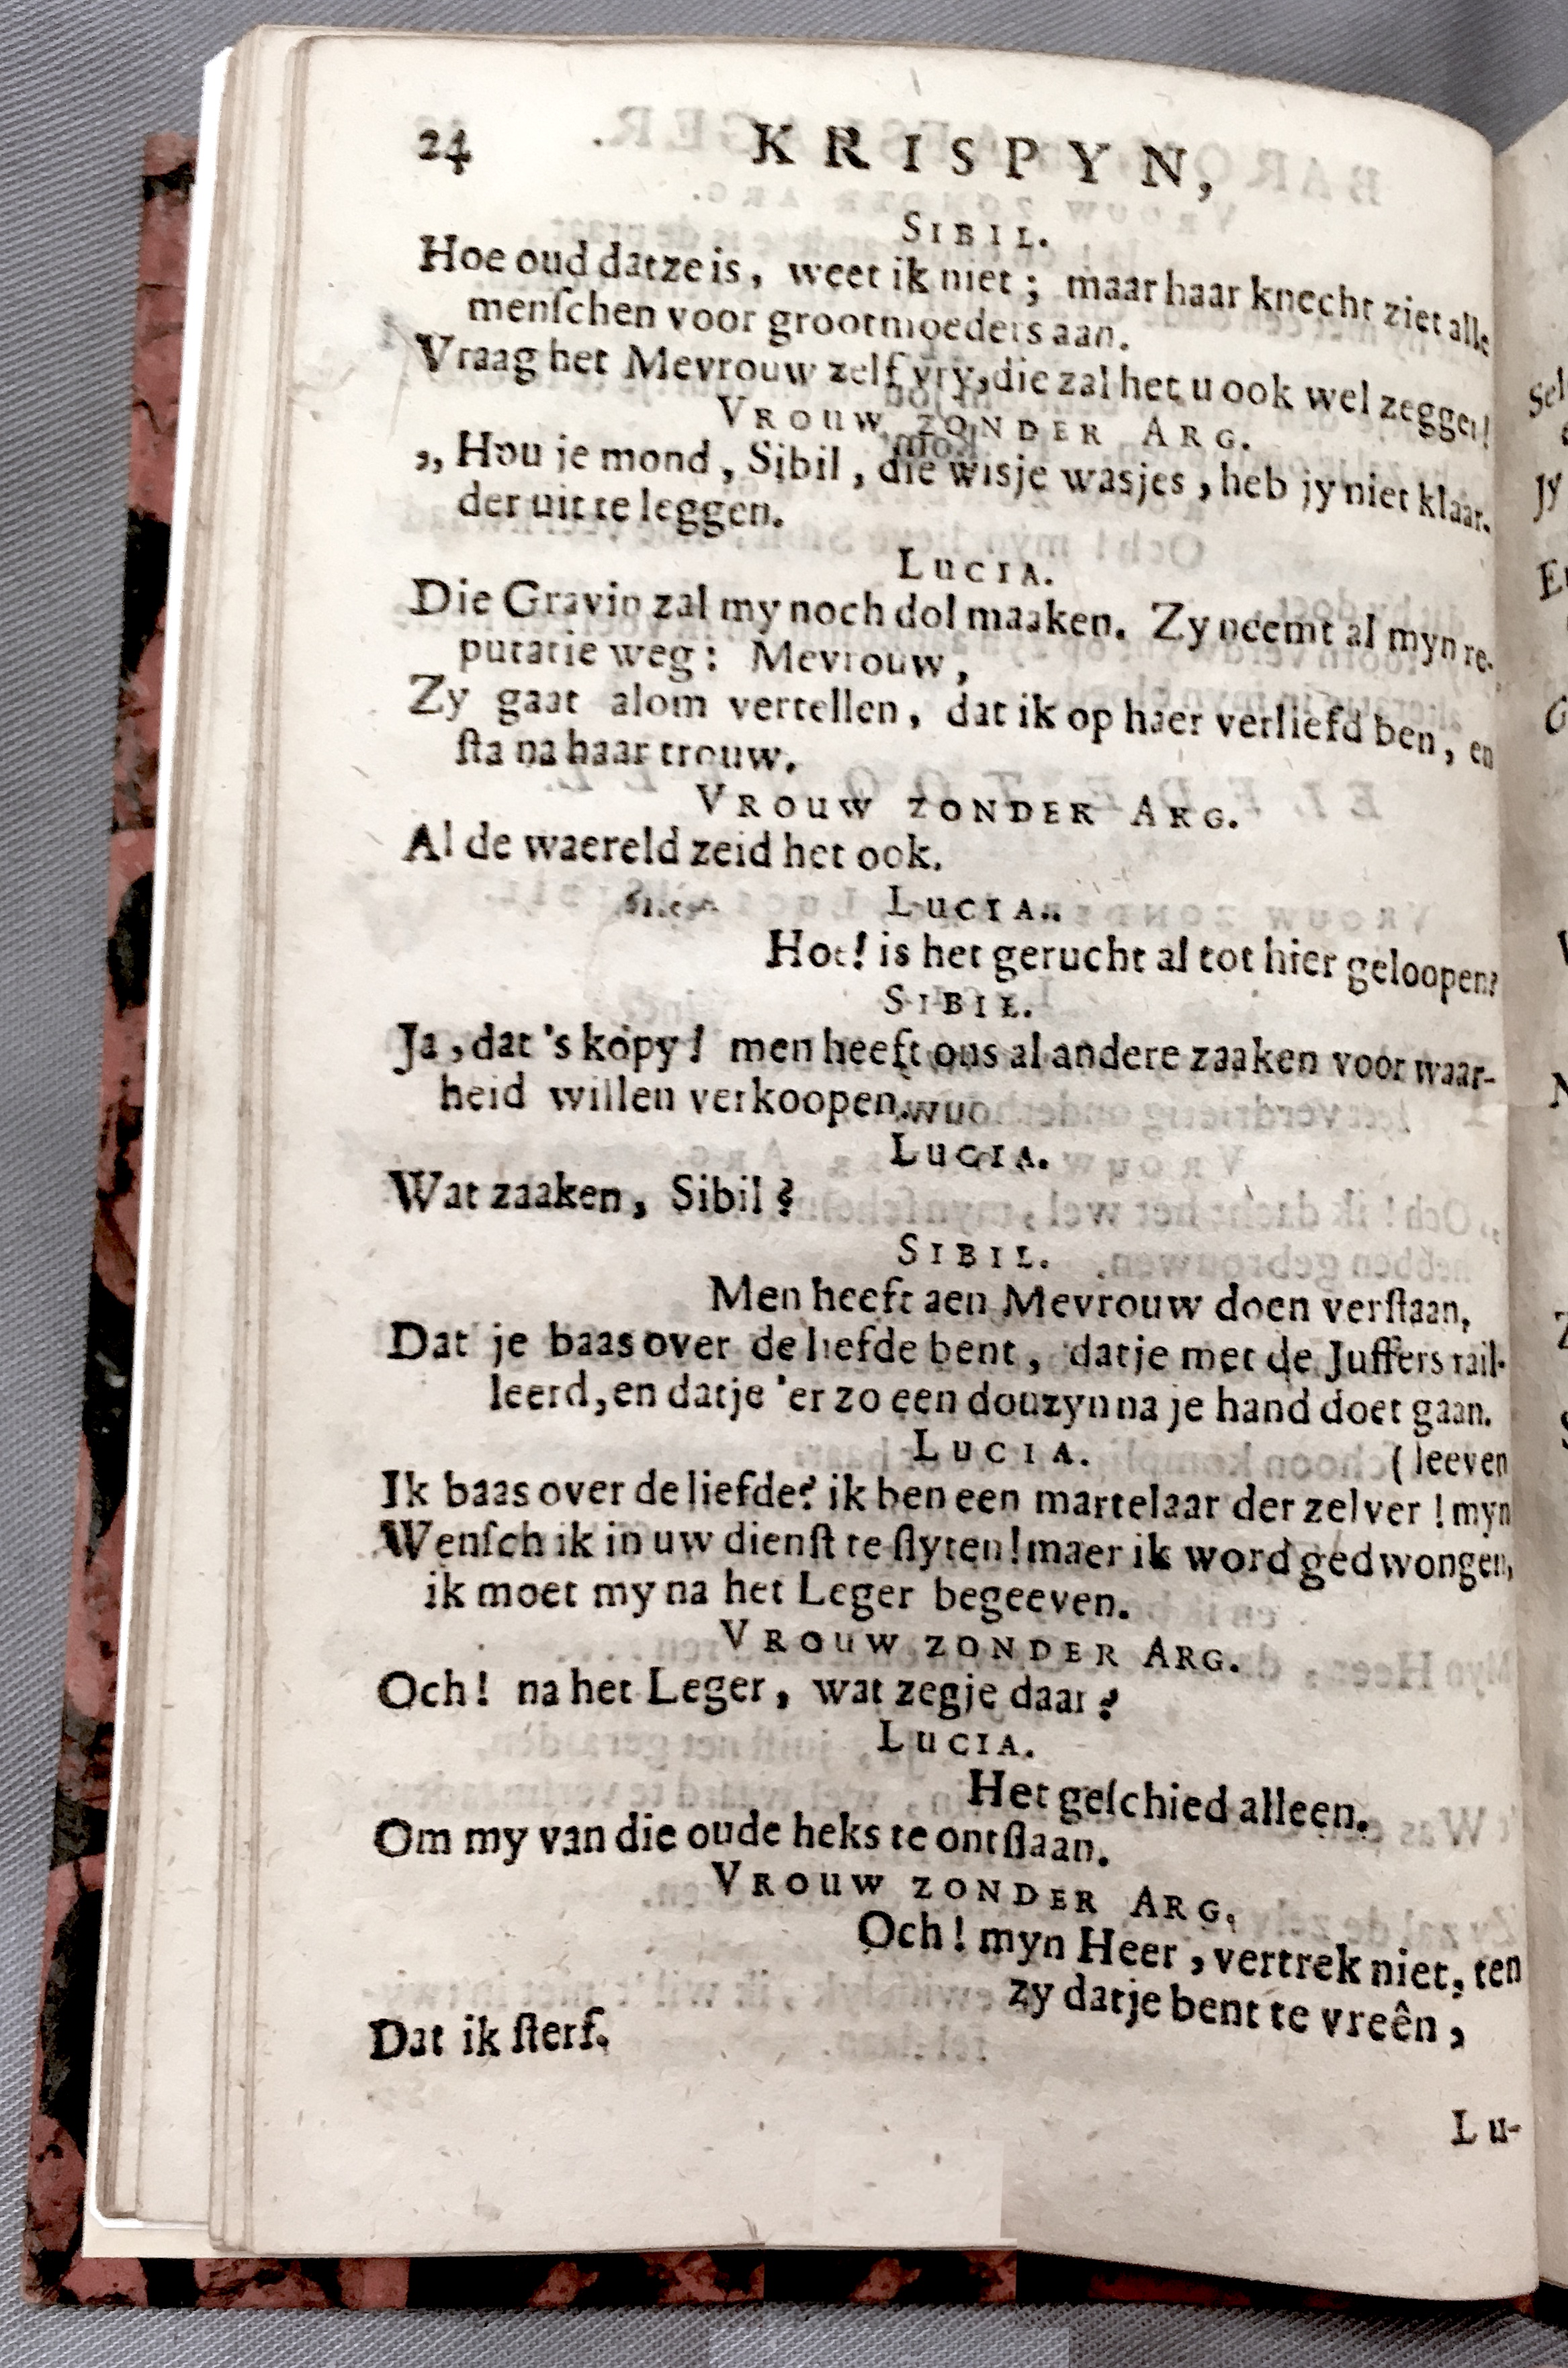 24 KRISPYN,
SIBIL.
Hoe oud datze is, weet ik niet; maar haar knecht ziet alle
menſchen voor grootmoeders aan.
Vraag het Mevrouw zelf vry, die zal het u ook wel zeggen!
VROUW ZONDER ARG.
„ Hou je mond, Sibil, die wisje wasjes, heb jy niet klaar.
der uit te leggen.
LUCIA.
Die Gravin zal my noch dol maaken. Zy neemt al myn re-
putatie weg: Mevrouw,
Zy gaat alom vertellen, dat ik op haer verliefd ben, en
ſta na haar trouw.
VROUW ZONDER ARG.
Al de waereld zeid het ook.
LUCIA.
Hoe! is het gerucht al tot hier geloopen?
SIBIL.
Ja, dat 's kopy! men heeft ons al andere zaaken voor waar-
heid willen verkoopen.
LUCIA.
Wat zaaken, Sibil?
SIBIL.
Men heeft aen Mevrouw doen verſtaan,
Dat je baas over de liefde bent, datje met de Juffers rail-
leerd, en datje 'er zo een douzyn na je hand doet gaan.
LUCIA. (leeven
Ik baas over de liefde? ik ben een martelaar der zelver! myn
Wenſch ik in uw dienſt te ſlyten! maer ik word gedwongen,
ik moet my na het Leger begeeven.
VROUW ZONDER ARG.
Och! na het Leger, wat zegje daar?
LUCIA.
Het geſchied alleen.
Om my van die oude heks te ontſlaan.
VROUW ZONDER ARG.
Och! myn Heer, vertrek niet, ten
zy datje bent te vreên,
Dat ik ſterf.
Lu-